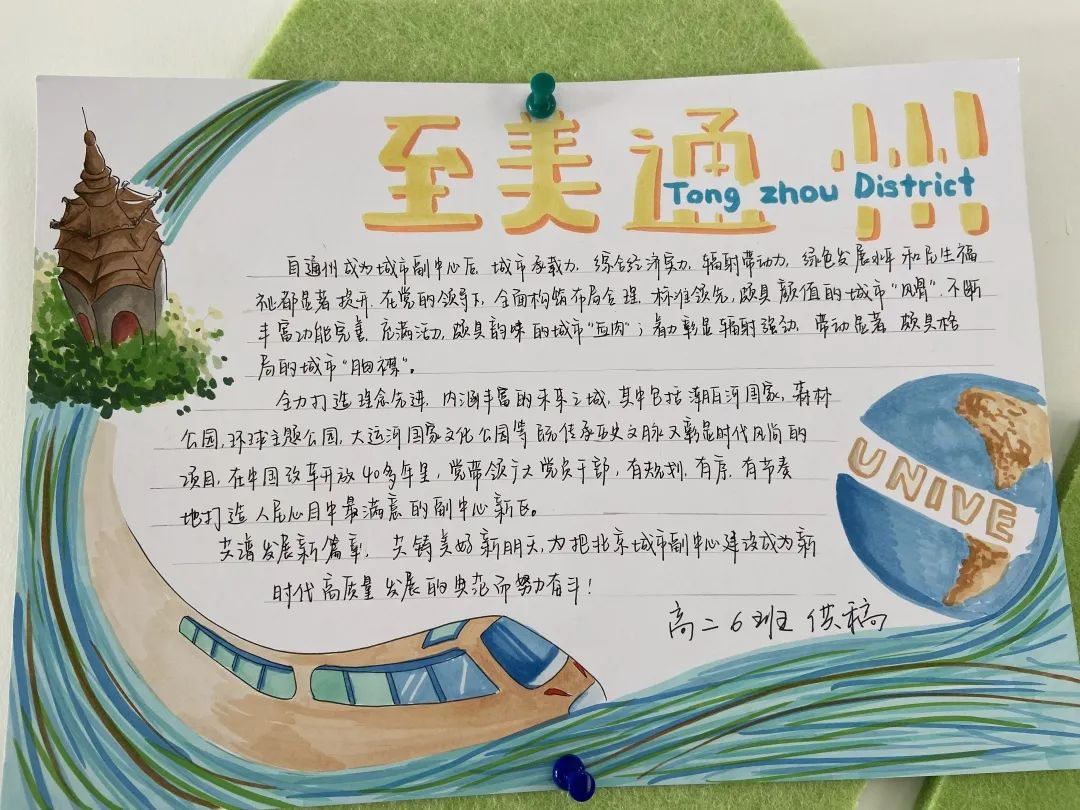 至美通州
Tong zhou District
自通州成为城市副中心后,城市承载力,综合经济实力,辐射带动力,绿色发展水平和民生福
祉都显著提升,在党的领导下,全面构筑布局合理,标准领先,颇具颜值的城市“风骨”,不断
丰富功能完善,充满活力,颇具韵味的城市“血肉”;着力彰显辐射强劲,带动显著,颇具格
局的城市“胸襟”。
全力打造理念先进,内涵丰富的未来之城,其中包括潮白河国家,森林
公园,环球主题公园,大运河国家文化公园等既传承历史文脉又彰显时代风尚的
项目,在中国改革开放40多年里,党带领广大党员干部,有规划,有序,有节奏
地打造人民心目中最满意的副中心新区。
共谱发展新篇章,共铸美好新明天,为把北京城市副中心建设成为新
时代高质量发展的典范而努力奋斗!
高二6班 供稿
UNIVE